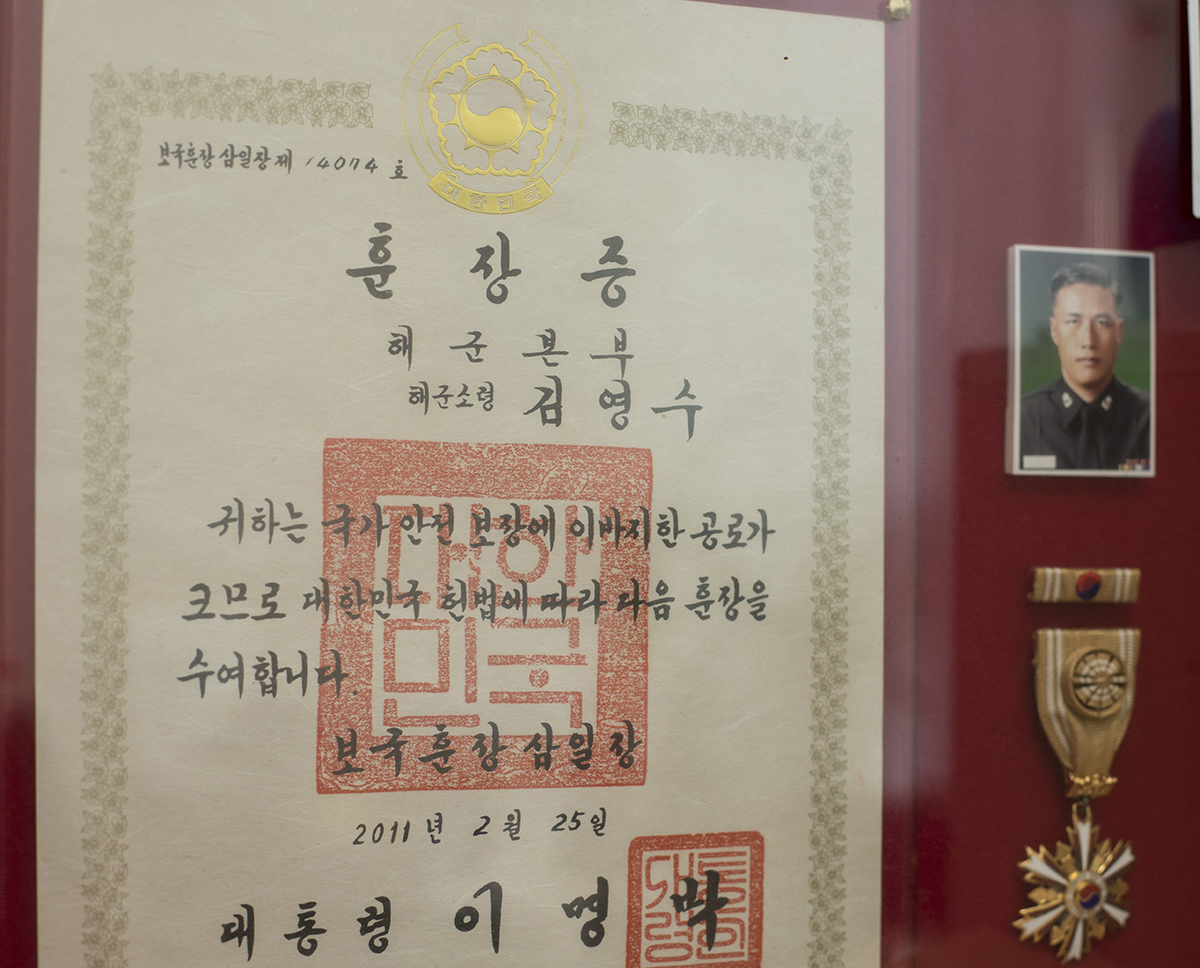 대한민국
보국훈장 삼일장 제 14074 호
훈장증
해군본부
해군소령 김영수
귀하는 국가 안전 보장에 이바지한 공로가
크므로 대한민국 헌법에 따라 다음 훈장을
수여합니다.
대한
민국
보국훈장 삼일장
2011년 2월 25일
대통령 이명박